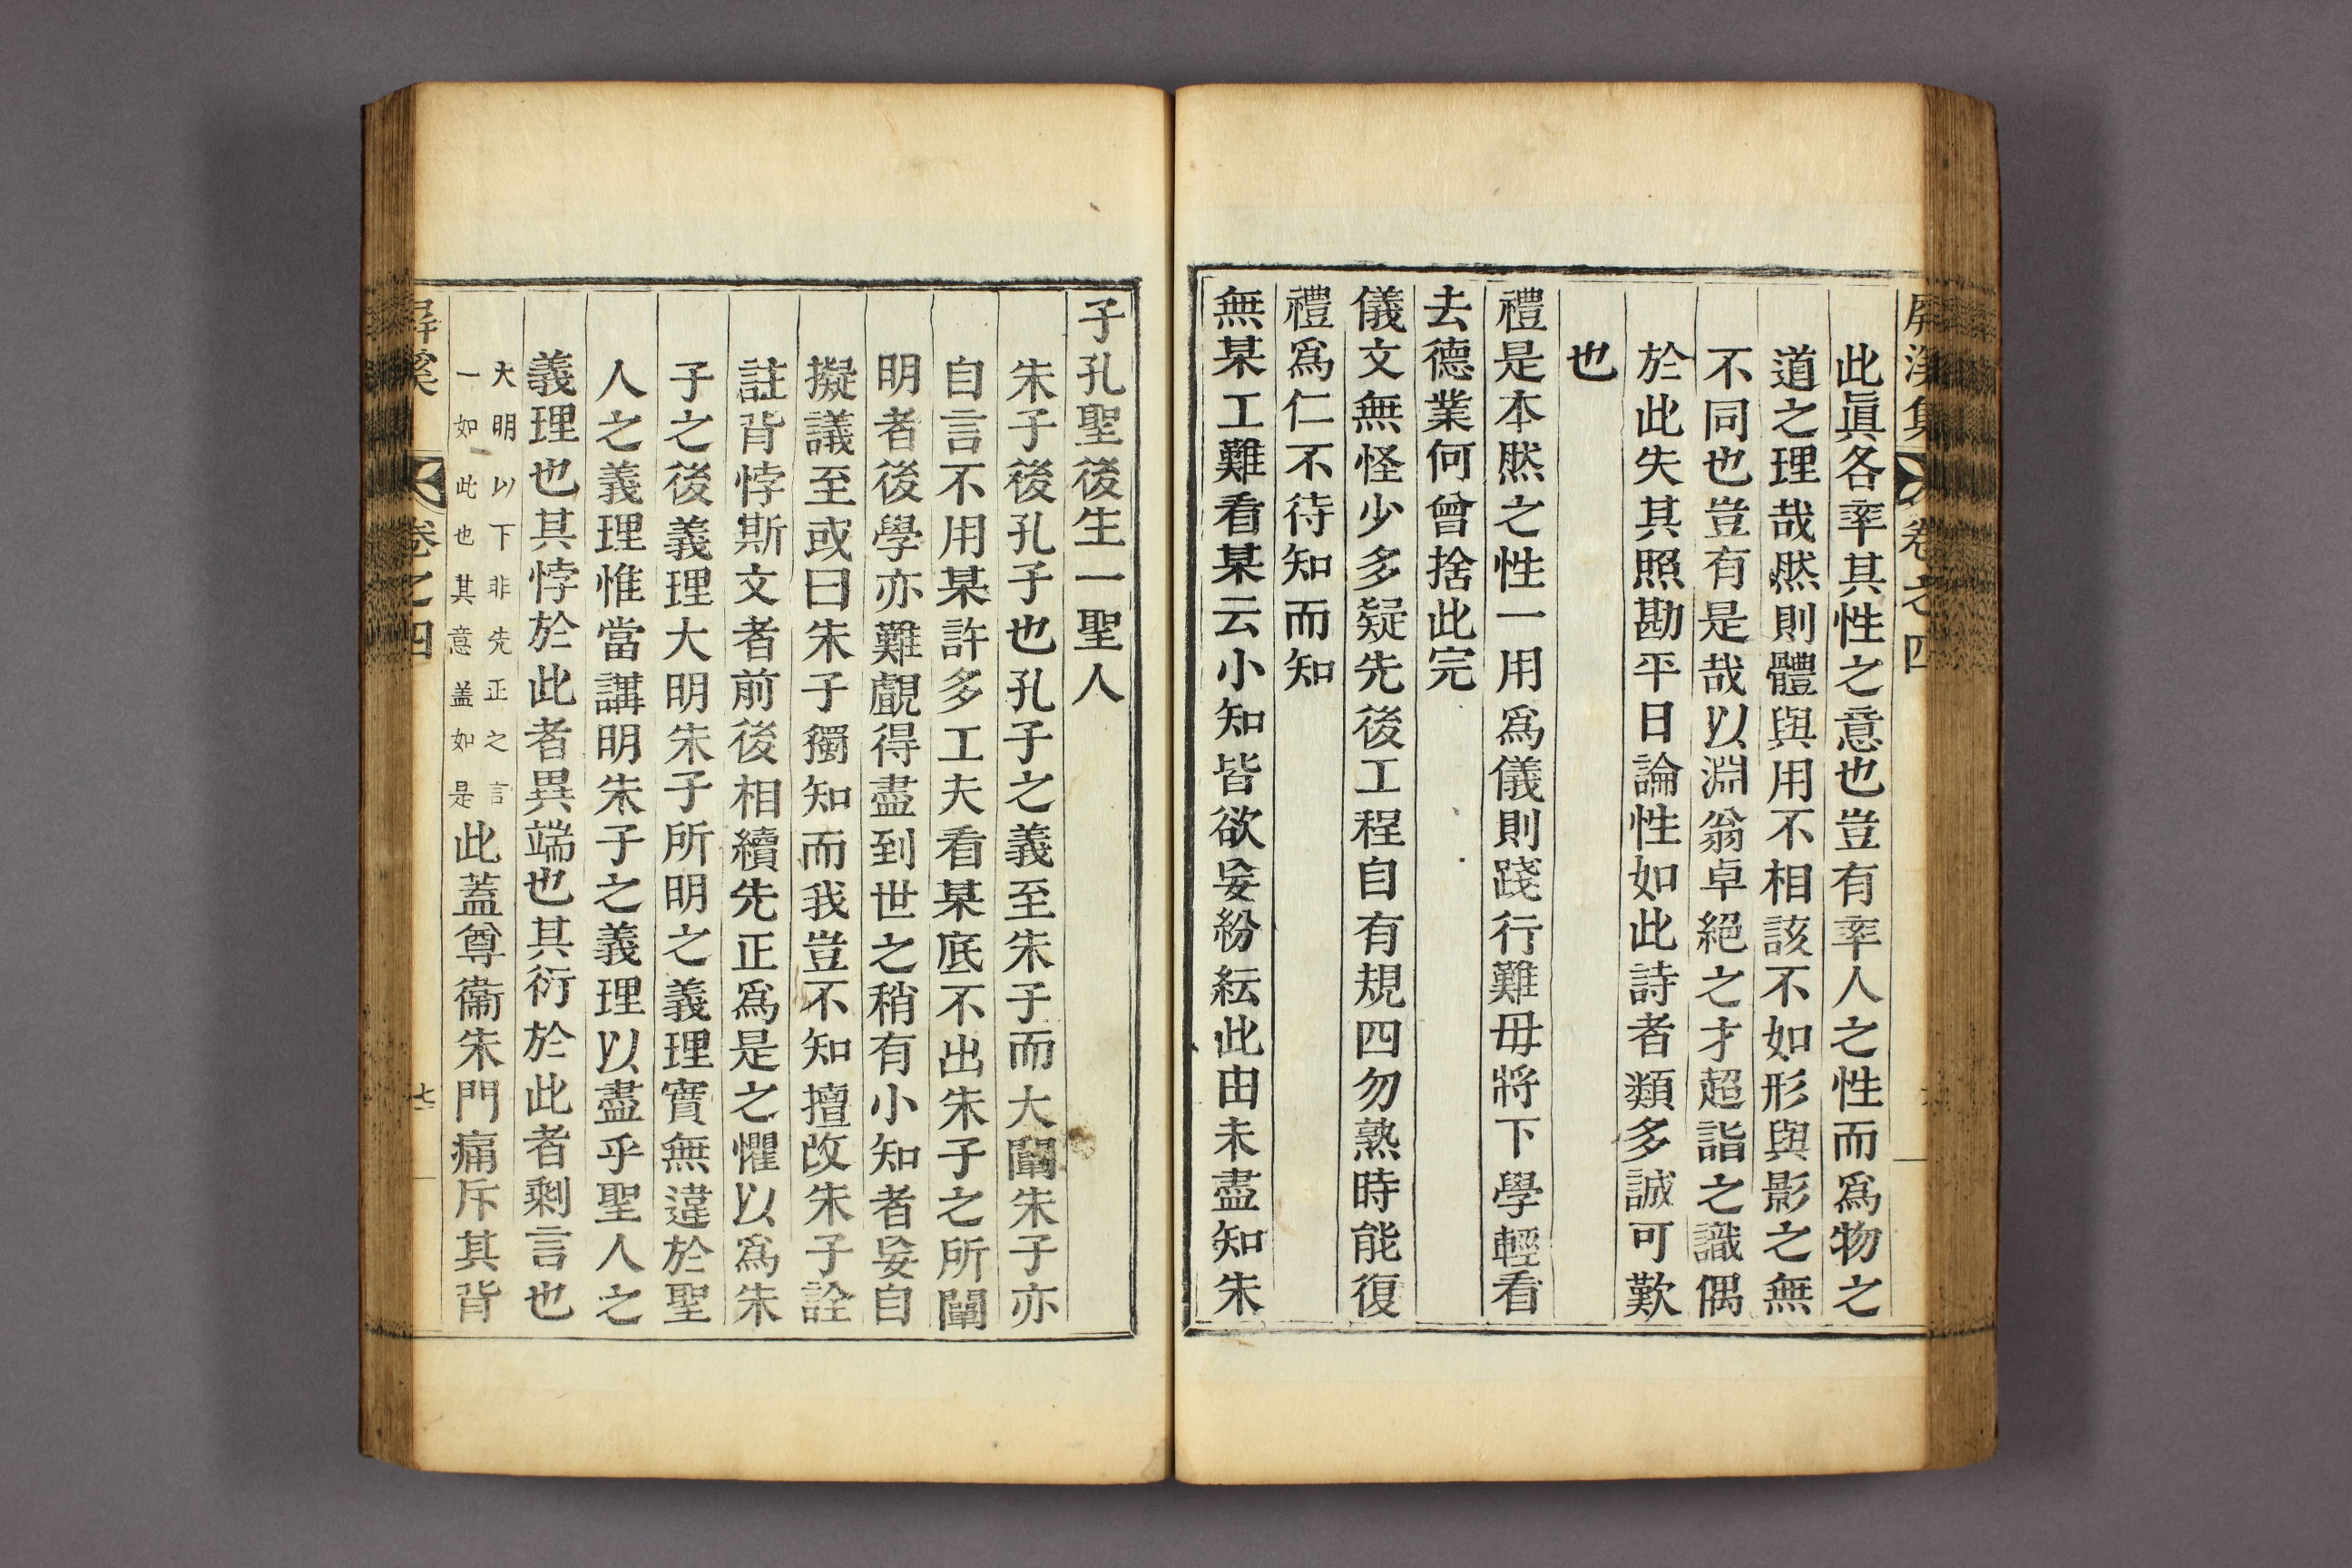 屛溪集 卷之四
此眞各率其性之意也豈有率人之性而爲物之
道之理哉然則體與用不相該不如形與影之無
不同也豈有是哉以淵翁卓絕之才超詣之識偶
於此失其照勘平日論性如此詩者類多誠可歎
也
禮是本然之性一用爲儀則踐行難毋將下學輕看
去德業何曾捨此完
儀文無怪少多疑先後工程自有規四勿熟時能復
禮爲仁不待知而知
無某工難看某云小知皆欲妄紛紜此由未盡知朱
子孔聖後生一聖人
朱子後孔子也孔子之義至朱子而大闡朱子亦
自言不用某許多工夫看某底不出朱子之所闡
明者後學亦難覰得盡到世之稍有小知者妄自
擬議至或曰朱子獨知而我豈不知擅改朱子詮
註背悖斯文者前後相續先正爲是之懼以爲朱
子之後義理大明朱子所明之義理實無違於聖
人之義理惟當講明朱子之義理以盡乎聖人之
義理也其悖於此者異端也其衍於此者剩言也
大明以下非先正之言
一如此也其意盖如是
此蓋尊衞朱門痛斥其背
屛溪 卷之四
七